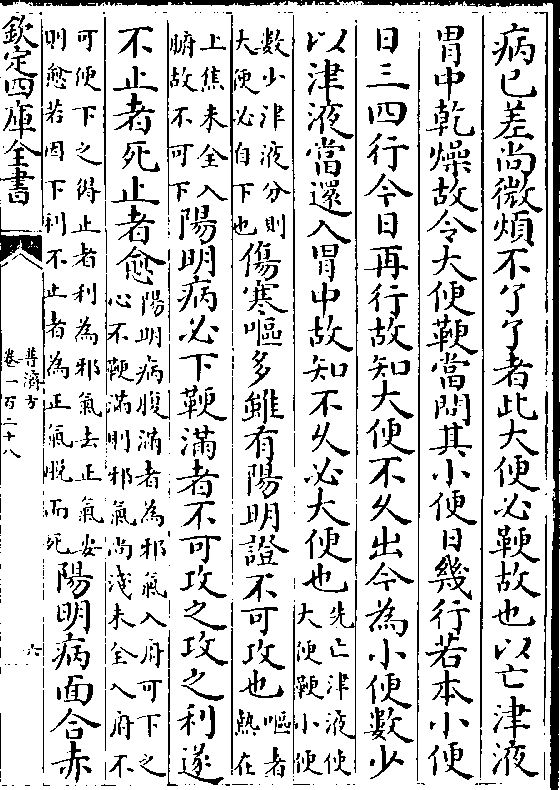 病已差尚微煩不了了者此大便必鞕故也以亡津液
胃中乾燥故令大便鞕當問其小便日幾行若本小便
日三四行今日再行故知大便不久出今為小便數少
以津液當還入胃中故知不久必大便也先亡津液使
大便鞕小便
數少津液分則
大便必自下也傷寒嘔多雖有陽明證不可攻也嘔者
熱在
上焦未全入
腑故不可下陽明病必下鞕滿者不可攻之攻之利遂
不止者死止者愈陽明病腹滿者為邪氣入府可下之
心不鞕滿則邪氣尚淺未全入府不
可便下之得止者利為邪氣去正氣安
則愈若因下利不止者為正氣脫而死陽明病面合赤
欽定四庫全書
普濟方
卷一百二十八
六